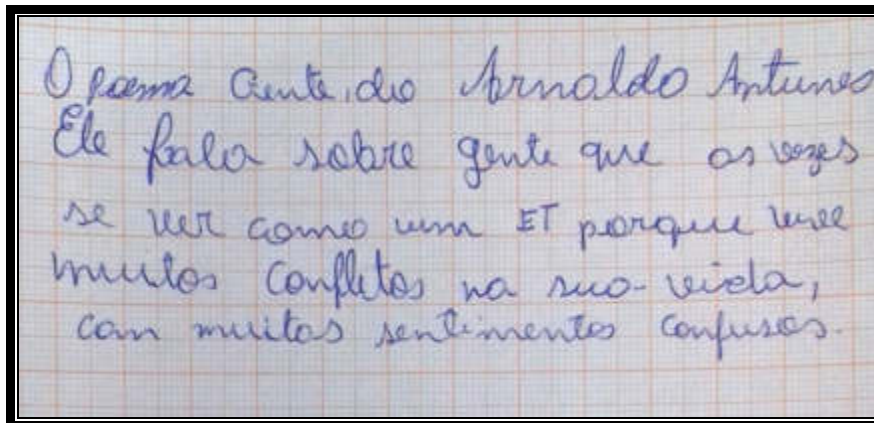 O poema Gente, do Arnaldo Antunes
Ele fala sobre gente que as vezes
se ver como um ET porque vive
muitos conflitos na sua vida,
com muitos sentimentos confusos.